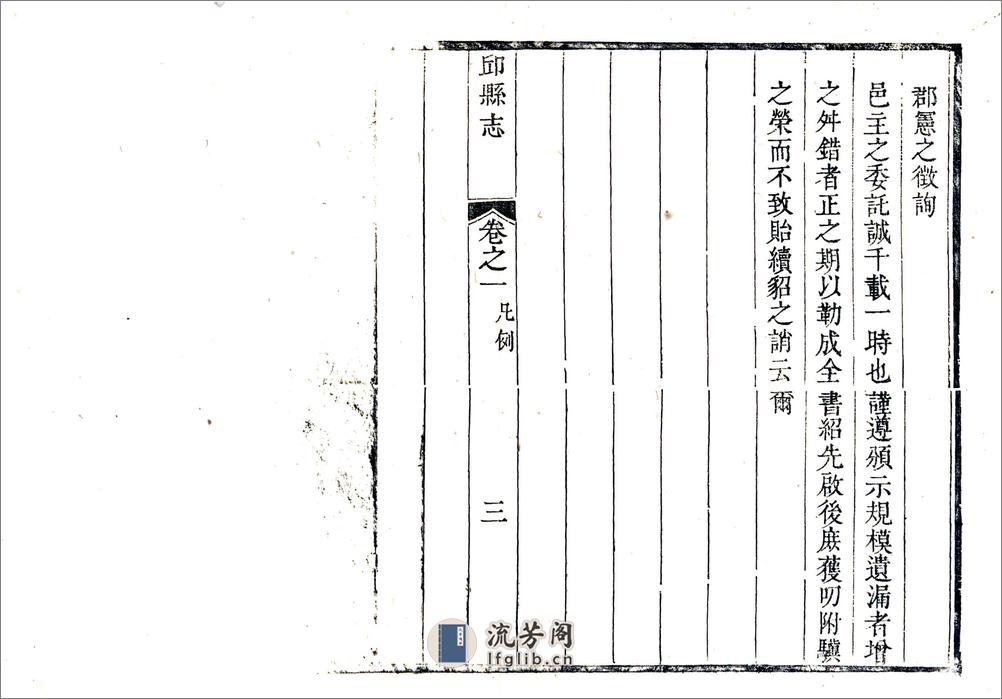 郡憲之徵詢
邑主之委託誠千載一時也謹遵頒示規模遺漏者增
之舛錯者正之期以勒成全書紹先啟後庶獲叨附驥
之榮而不致貽續貂之誚云爾
邱縣志
卷之一
凡例
三
流芳阁
lfglib.cn